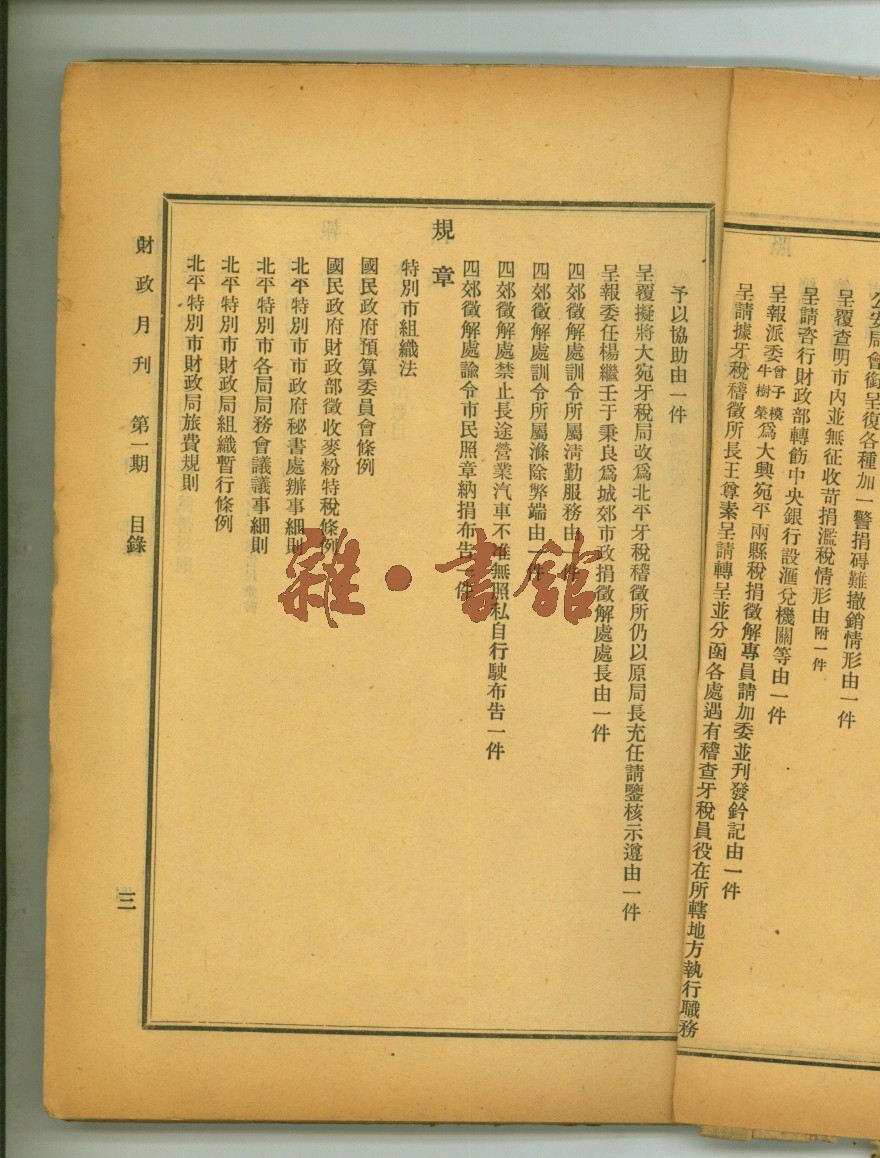 公安局會銜呈復各種加一警捐碍難撤銷情形由一件
呈覆查明市內並無征收苛捐濫稅情形由附一件
呈請咨行財政部轉飭中央銀行設滙兌機關等由一件
呈報派委曾子模牛樹榮爲大興宛平兩縣稅捐徵解專員請加委並刋發鈐記由一件
呈請據牙稅稽徵所長王尊素呈請轉呈並分函各處遇有稽查牙稅員役在所轄地方執行職務
予以協助由一件
呈覆擬將大宛牙稅局改爲北平牙稅稽徵所仍以原局長充任請鑒核示遵由一件
呈報委任楊繼壬于秉良爲城郊市政捐徵解處處長由一件
四郊徵解處訓令所屬淸勤服務由一件
四郊徵解處訓令所屬滌除弊端由一件
四郊徵解處禁止長途營業汽車不准無照私自行駛布告一件
四郊徵解處諭令市民照章納捐布告一件
規章
特別市組織法
國民政府預算委員會條例
國民政府財政部徵收麥粉特稅條例
北平特別市市政府秘書處辦事細則
北平特別市各局局務會議議事細則
北平特別市財政局組織暫行條例
北平特別市財政局旅費規則
財政月刋 第一期 目錄
三
雜·書館